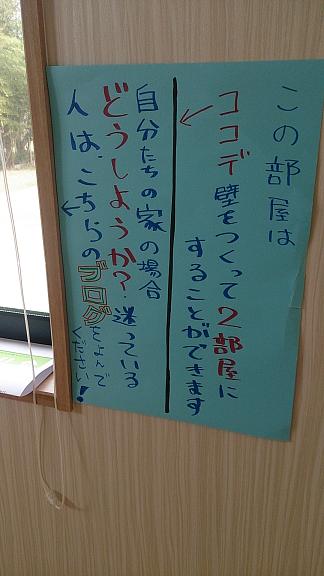 この部屋は
ココデ壁をつくって2部屋に
することができます
自分たちの家の場合
どうしようか?迷っている
人は、こちらのブログをよんで
ください!